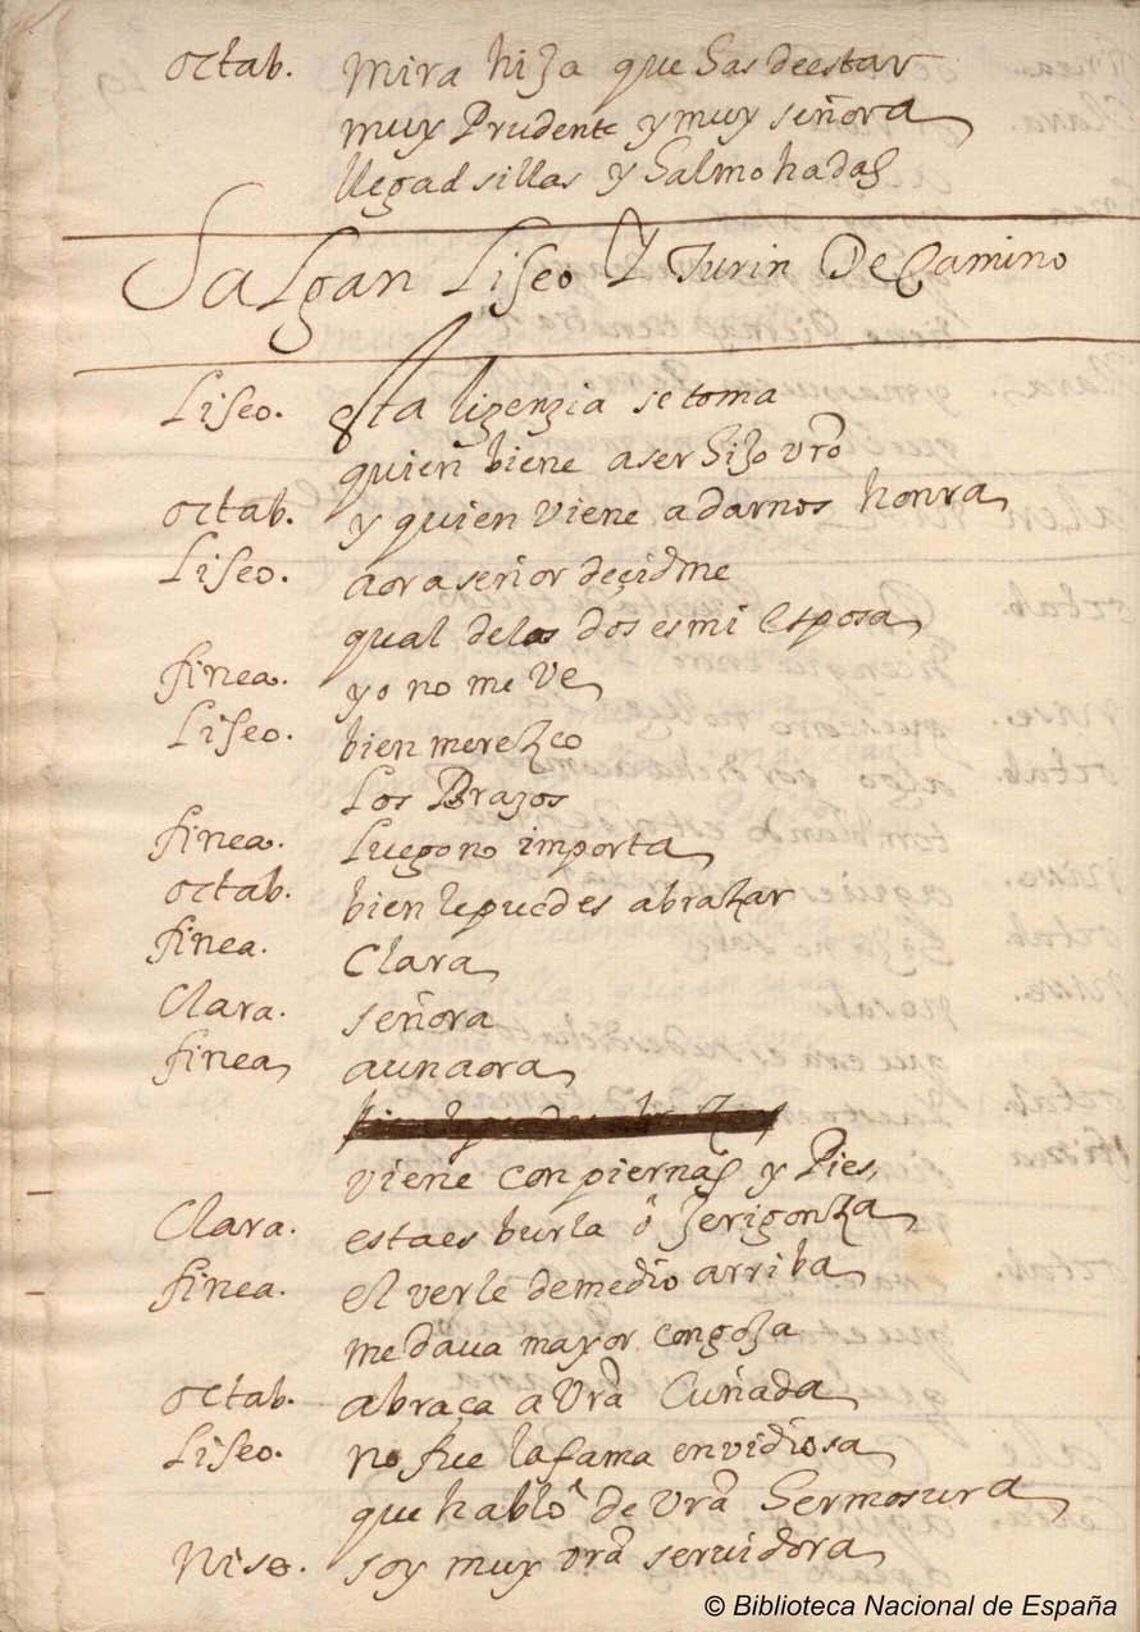 octab. mira hija que has de estar
muy Prudente y muy señora
llegad sillas y halmohadas
Salgan Liseo y Turin De Camino
Liseo. esta lizenzia se toma
quien biene a ser hijo vro
octab. y quien viene a darnos honra
Liseo. aora señor deçidme
qual de las dos es mi esposa
finea. yo no me ve
Liseo. bien merezco
Los Brazos
finea. Luego no importa
octab. bien le puedes abrazar
finea. Clara
Clara. señora
finea aun aora
viene con piernas y Pies,
Clara. esta es burla o jerigonza
finea. el verle de medio arriba
me daua mayor congoja
octab. abraça a vra Cuñada
Liseo. no fue la fama envidiosa
que habló de vra hermosura
Nise. soy muy vra seruidora
© Biblioteca Nacional de España